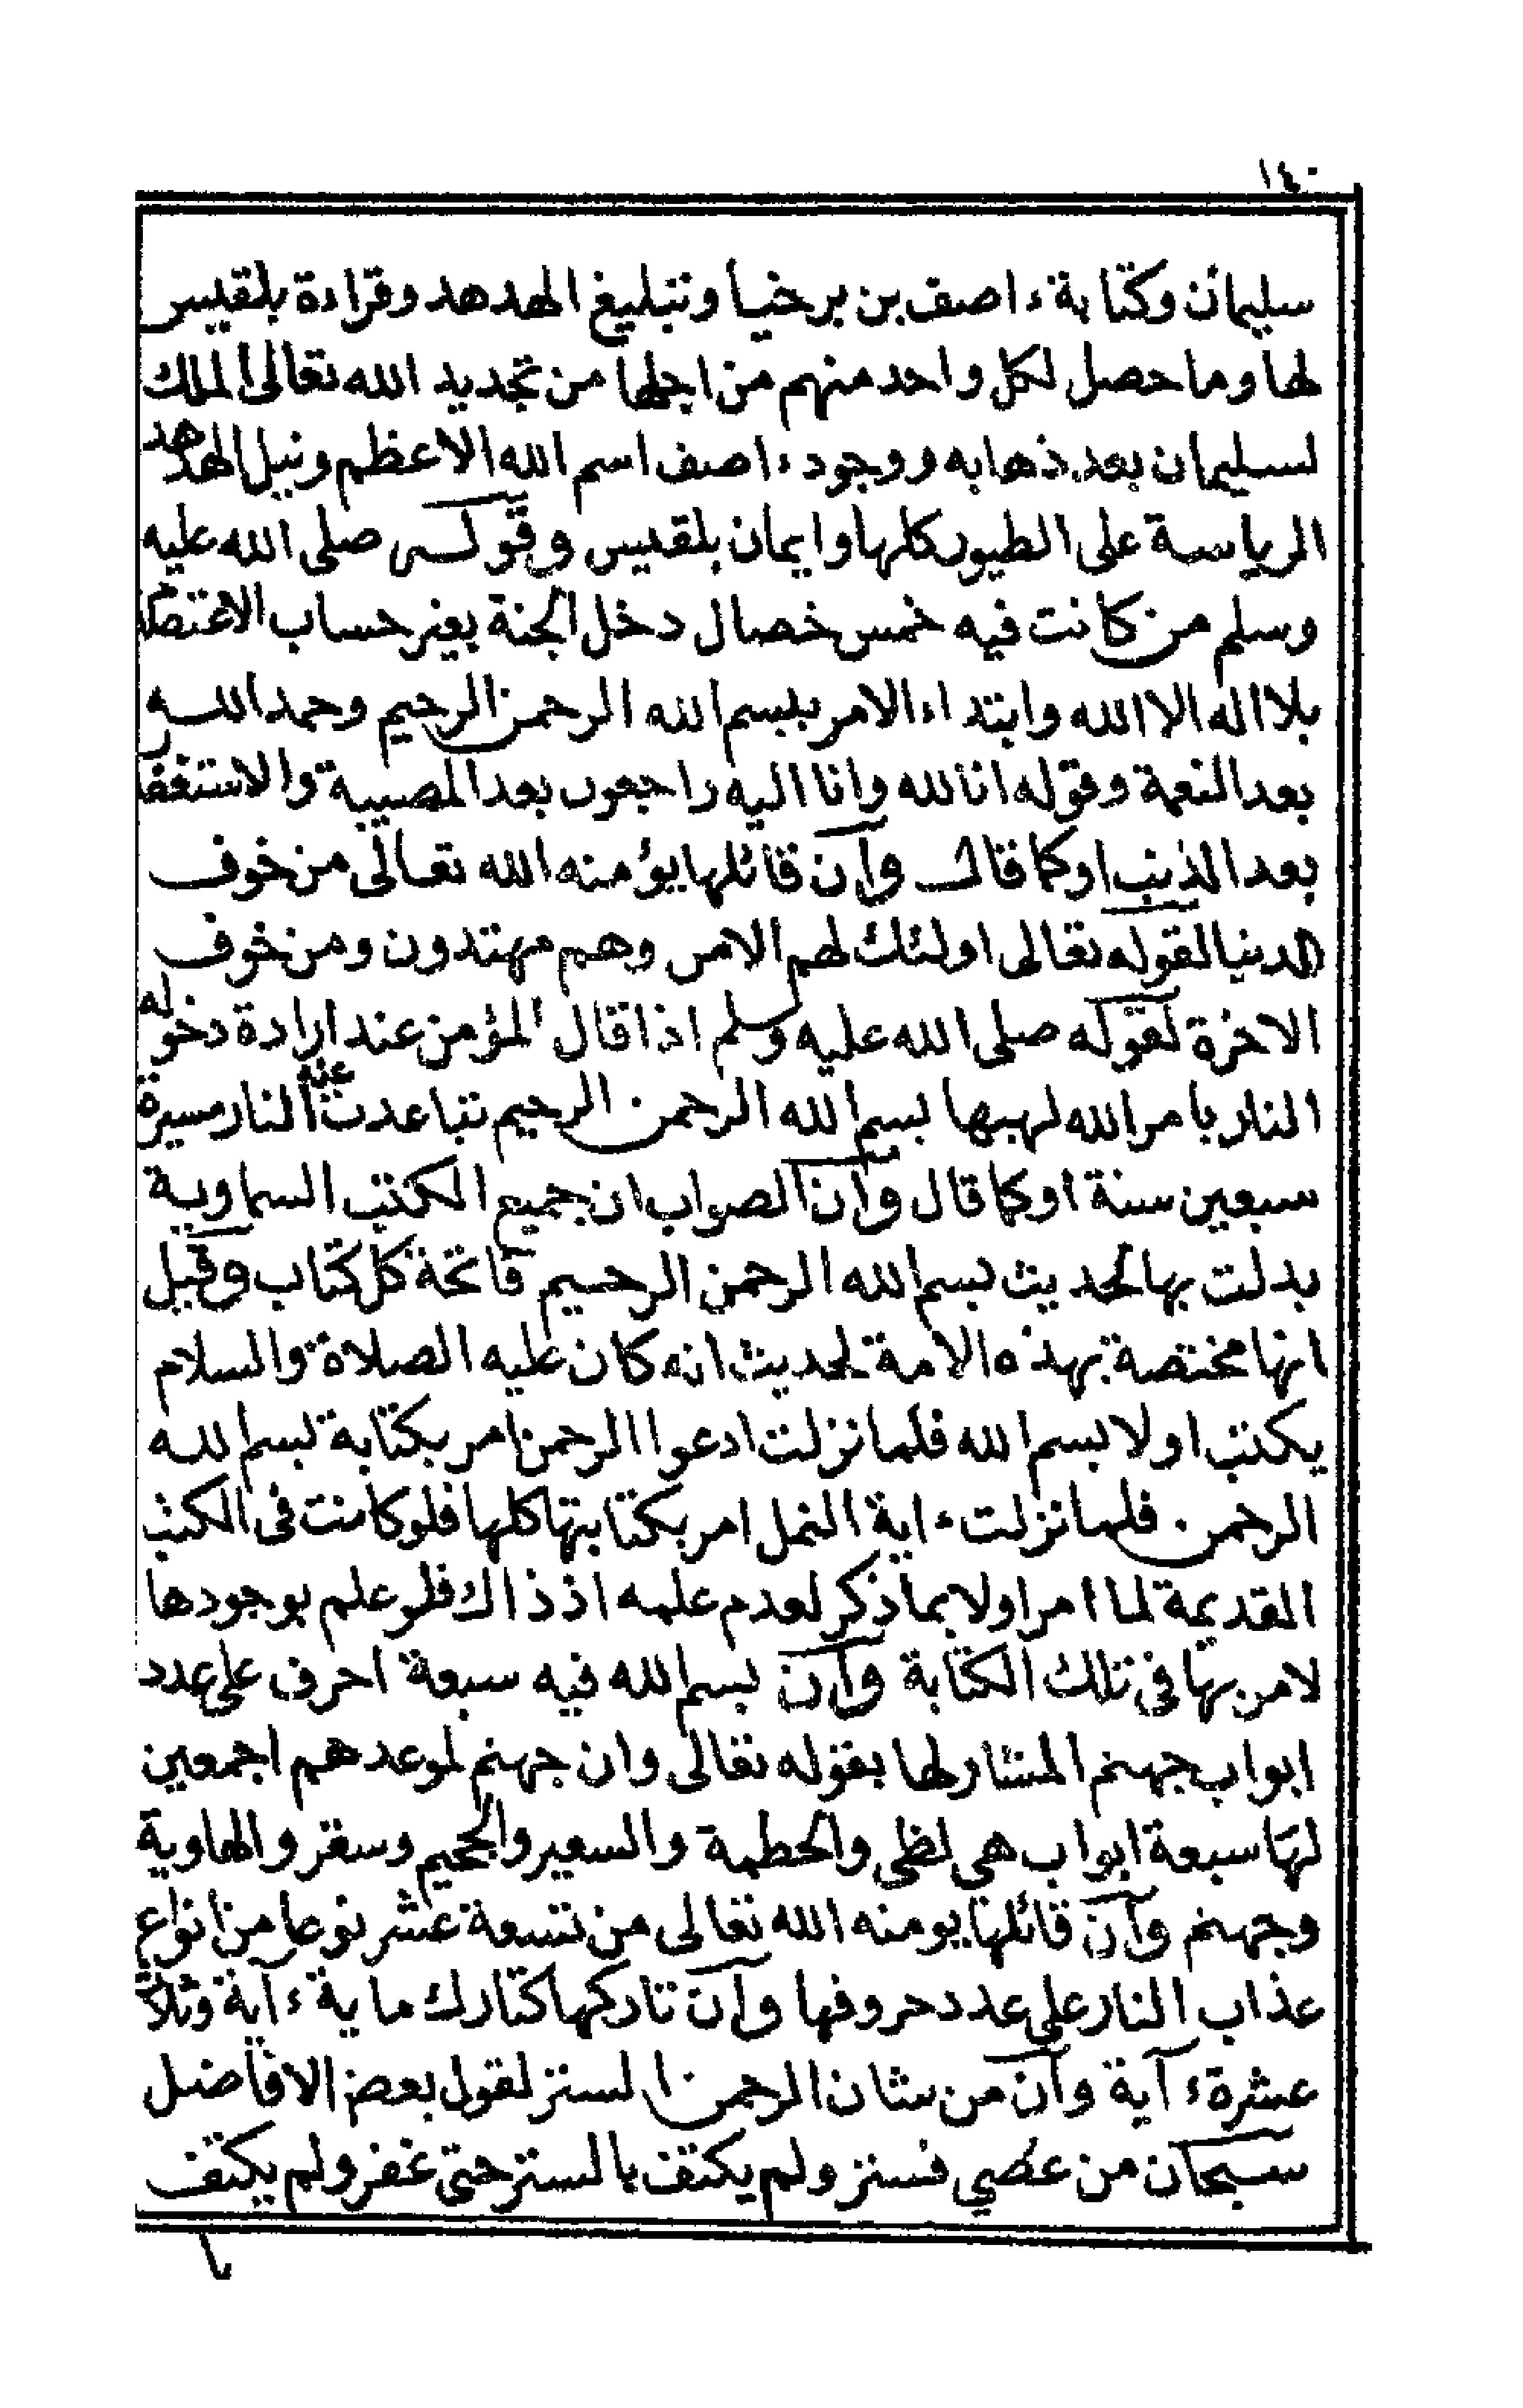 ١٤٠
سليمان وكتابة ءاصف بن برخيا وتبليغ الهدهد وقراءة بلقيس
لها وما حصل لكل واحد منهم من اجلها من تجديد الله تعالى الملك
لسليمان بعد ذهابه ووجود ءاصف اسم الله الاعظم ونيل الهدهد
الرياسة على الطيور كلها وايمان بلقيس وقوله صلى الله عليه
وسلم من كانت فيه خمس خصال دخل الجنة بغير حساب الاعتصام
بلا اله الا الله وابتداء الامر ببسم الله الرحمن الرحيم وحمد الله
بعد النعمة وقوله انا لله وانا اليه راجعون بعد المصيبة والاستغفار
بعد الذنب او كما قال وان قائلها يؤمنه الله تعالى من خوف
الدنيا لقوله تعالى اولئك لهم الامن وهم مهتدون ومن خوف
الاخرة لقوله صلى الله عليه وسلم اذا قال المؤمن عند ارادة دخوله
النار بامر الله لهبها بسم الله الرحمن الرحيم تباعدت عنه النار مسيرة
سبعين سنة او كما قال وان الصواب ان جميع الكتب السماوية
بدلت بها لحديث بسم الله الرحمن الرحيم فاتحة كل كتاب وقيل
انها مختصة بهذه الامة لحديث انه كان عليه الصلاة والسلام
يكتب اولا بسم الله فلما نزلت ادعوا الرحمن امر بكتابة بسم الله
الرحمن فلما نزلت ءاية النمل امر بكتابتها كلها فلو كانت في الكتب
القديمة لما امر اولا بما ذكر لعدم علمه اذ ذاك فلو علم بوجودها
لامر بها في تلك الكتابة وان بسم الله فيه سبعة احرف على عدد
ابواب جهنم المشار لها بقوله تعالى وان جهنم لموعدهم اجمعين
لها سبعة ابواب هي لظى والحطمة والسعير والجحيم وسقر والهاوية
وجهنم وان قائلها يومنه الله تعالى من تسعة عشر نوعا من انواع
عذاب النار على عدد حروفها وان تاركها كتارك ماية ءآية وثلاث
عشرة ءآية وان من شان الرحمن الستر لقول بعض الافاضل
سبحان من عصي فستر ولم يكتف بالستر حتى غفر ولم يكتف
با